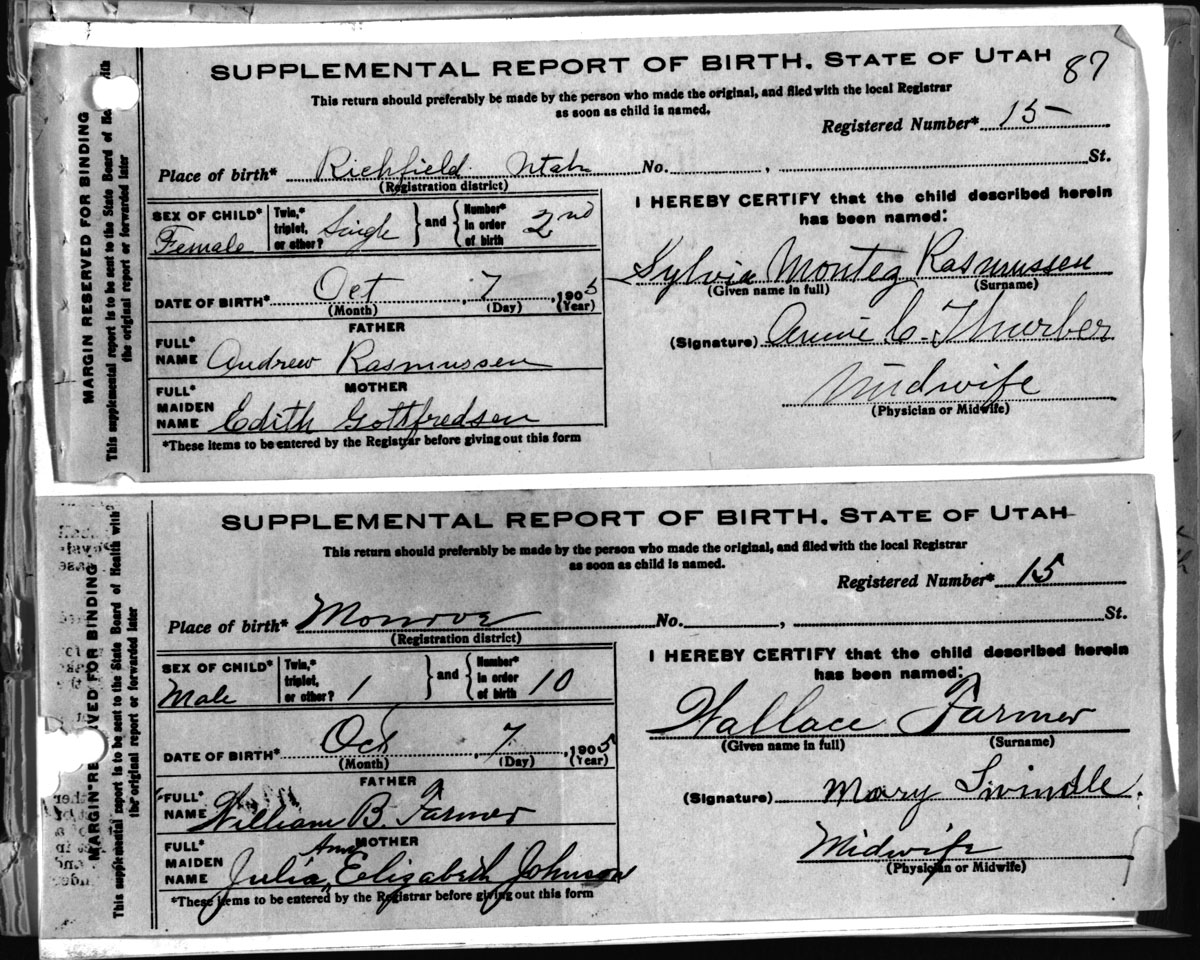 87
SUPPLEMENTAL REPORT OF BIRTH. STATE OF UTAH
This return should preferably be made by the person who made the original, and filed with the local Registrar
as soon as child is named.
Registered Number* 15-
Place of birth* Richfield Utah No. , St.
(Registration district)
SEX OF CHILD* Female
Twin,* triplet, or other? Single } and { Number* in order of birth 2nd
DATE OF BIRTH* Oct , 7 , 1905
(Month) (Day) (Year)
FATHER
FULL* NAME Andrew Rasmussen
MOTHER
FULL* MAIDEN NAME Edith Gottfredsen
*These items to be entered by the Registrar before giving out this form
I HEREBY CERTIFY that the child described herein
has been named:
Sylvia Montez Rasmussen
(Given name in full) (Surname)
(Signature) Annie C. Thurber
Midwife
(Physician or Midwife)
MARGIN RESERVED FOR BINDING
This supplemental report is to be sent to the State Board of with
the original report or forwarded later
SUPPLEMENTAL REPORT OF BIRTH. STATE OF UTAH
This return should preferably be made by the person who made the original, and filed with the local Registrar
as soon as child is named.
Registered Number* 15
Place of birth* Monroe No. , St.
(Registration district)
SEX OF CHILD* Male
Twin,* triplet, or other? 1 } and { Number* in order of birth 10
DATE OF BIRTH* Oct , 7 , 1905
(Month) (Day) (Year)
FATHER
FULL* NAME William B. Farmer
MOTHER
FULL* MAIDEN NAME Julia Ann Elizabeth Johnson
*These items to be entered by the Registrar before giving out this form
I HEREBY CERTIFY that the child described herein
has been named:
Wallace Farmer
(Given name in full) (Surname)
(Signature) Mary Swindle.
Midwife
(Physician or Midwife)
MARGIN RESERVED FOR BINDING
This supplemental report is to be sent to the State Board of Health with
the original report or forwarded later